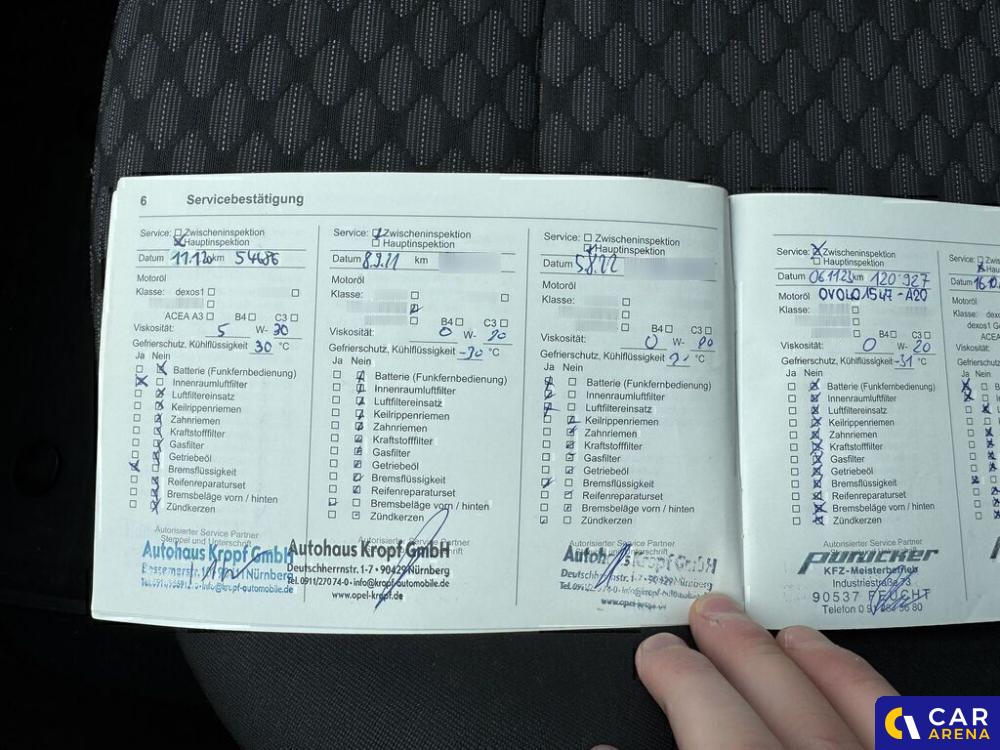 6 Servicebestätigung
Service: Zwischeninspektion
Hauptinspektion
Datum 11.1.20 km 54686
Motoröl
Klasse: dexos1
ACEA A3 B4 C3
Viskosität: 5 W- 30
Gefrierschutz, Kühlflüssigkeit 30 °C
Ja Nein
Batterie (Funkfernbedienung)
Innenraumluftfilter
Luftfiltereinsatz
Keilrippenriemen
Zahnriemen
Kraftstofffilter
Gasfilter
Getriebeöl
Bremsflüssigkeit
Reifenreparaturset
Bremsbeläge vorn / hinten
Zündkerzen
Autorisierter Service Partner
Stempel und Unterschrift
Autohaus Kropf GmbH
Nürnberg
Service: Zwischeninspektion
Hauptinspektion
Datum 8.9.21 km
Motoröl
Klasse:
B4 C3
Viskosität: 0 W- 20
Gefrierschutz, Kühlflüssigkeit -30 °C
Ja Nein
Batterie (Funkfernbedienung)
Innenraumluftfilter
Luftfiltereinsatz
Keilrippenriemen
Zahnriemen
Kraftstofffilter
Gasfilter
Getriebeöl
Bremsflüssigkeit
Reifenreparaturset
Bremsbeläge vorn / hinten
Zündkerzen
Autorisierter Service Partner
Autohaus Kropf GmbH
Deutschherrnstr. 1-7 • 90429 Nürnberg
Tel. 0911/27074-0 • info@kropf-automobile.de
www.opel-kropf.de
Service: Zwischeninspektion
Hauptinspektion
Datum 5.8.22
Motoröl
Klasse:
B4 C3
Viskosität: 0 W- 20
Gefrierschutz, Kühlflüssigkeit °C
Ja Nein
Batterie (Funkfernbedienung)
Innenraumluftfilter
Luftfiltereinsatz
Keilrippenriemen
Zahnriemen
Kraftstofffilter
Gasfilter
Getriebeöl
Bremsflüssigkeit
Reifenreparaturset
Bremsbeläge vorn / hinten
Zündkerzen
Autorisierter Service Partner
Kropf GmbH
Service: Zwischeninspektion
Hauptinspektion
Datum 06.11.23 km 120 927
Motoröl OVOL01547-A20
Klasse:
B4 C3
Viskosität: 0 W- 20
Gefrierschutz, Kühlflüssigkeit -31 °C
Ja Nein
Batterie (Funkfernbedienung)
Innenraumluftfilter
Luftfiltereinsatz
Keilrippenriemen
Zahnriemen
Kraftstofffilter
Gasfilter
Getriebeöl
Bremsflüssigkeit
Reifenreparaturset
Bremsbeläge vorn / hinten
Zündkerzen
Autorisierter Service Partner
KFZ-Meisterbetrieb
Industriestraße 73
90537 FEUCHT
Telefon
Service:
Datum
Motoröl
Klasse:
dexos1
ACEA
Viskosität:
Gefrierschutz
Ja Nein
CAR
ARENA